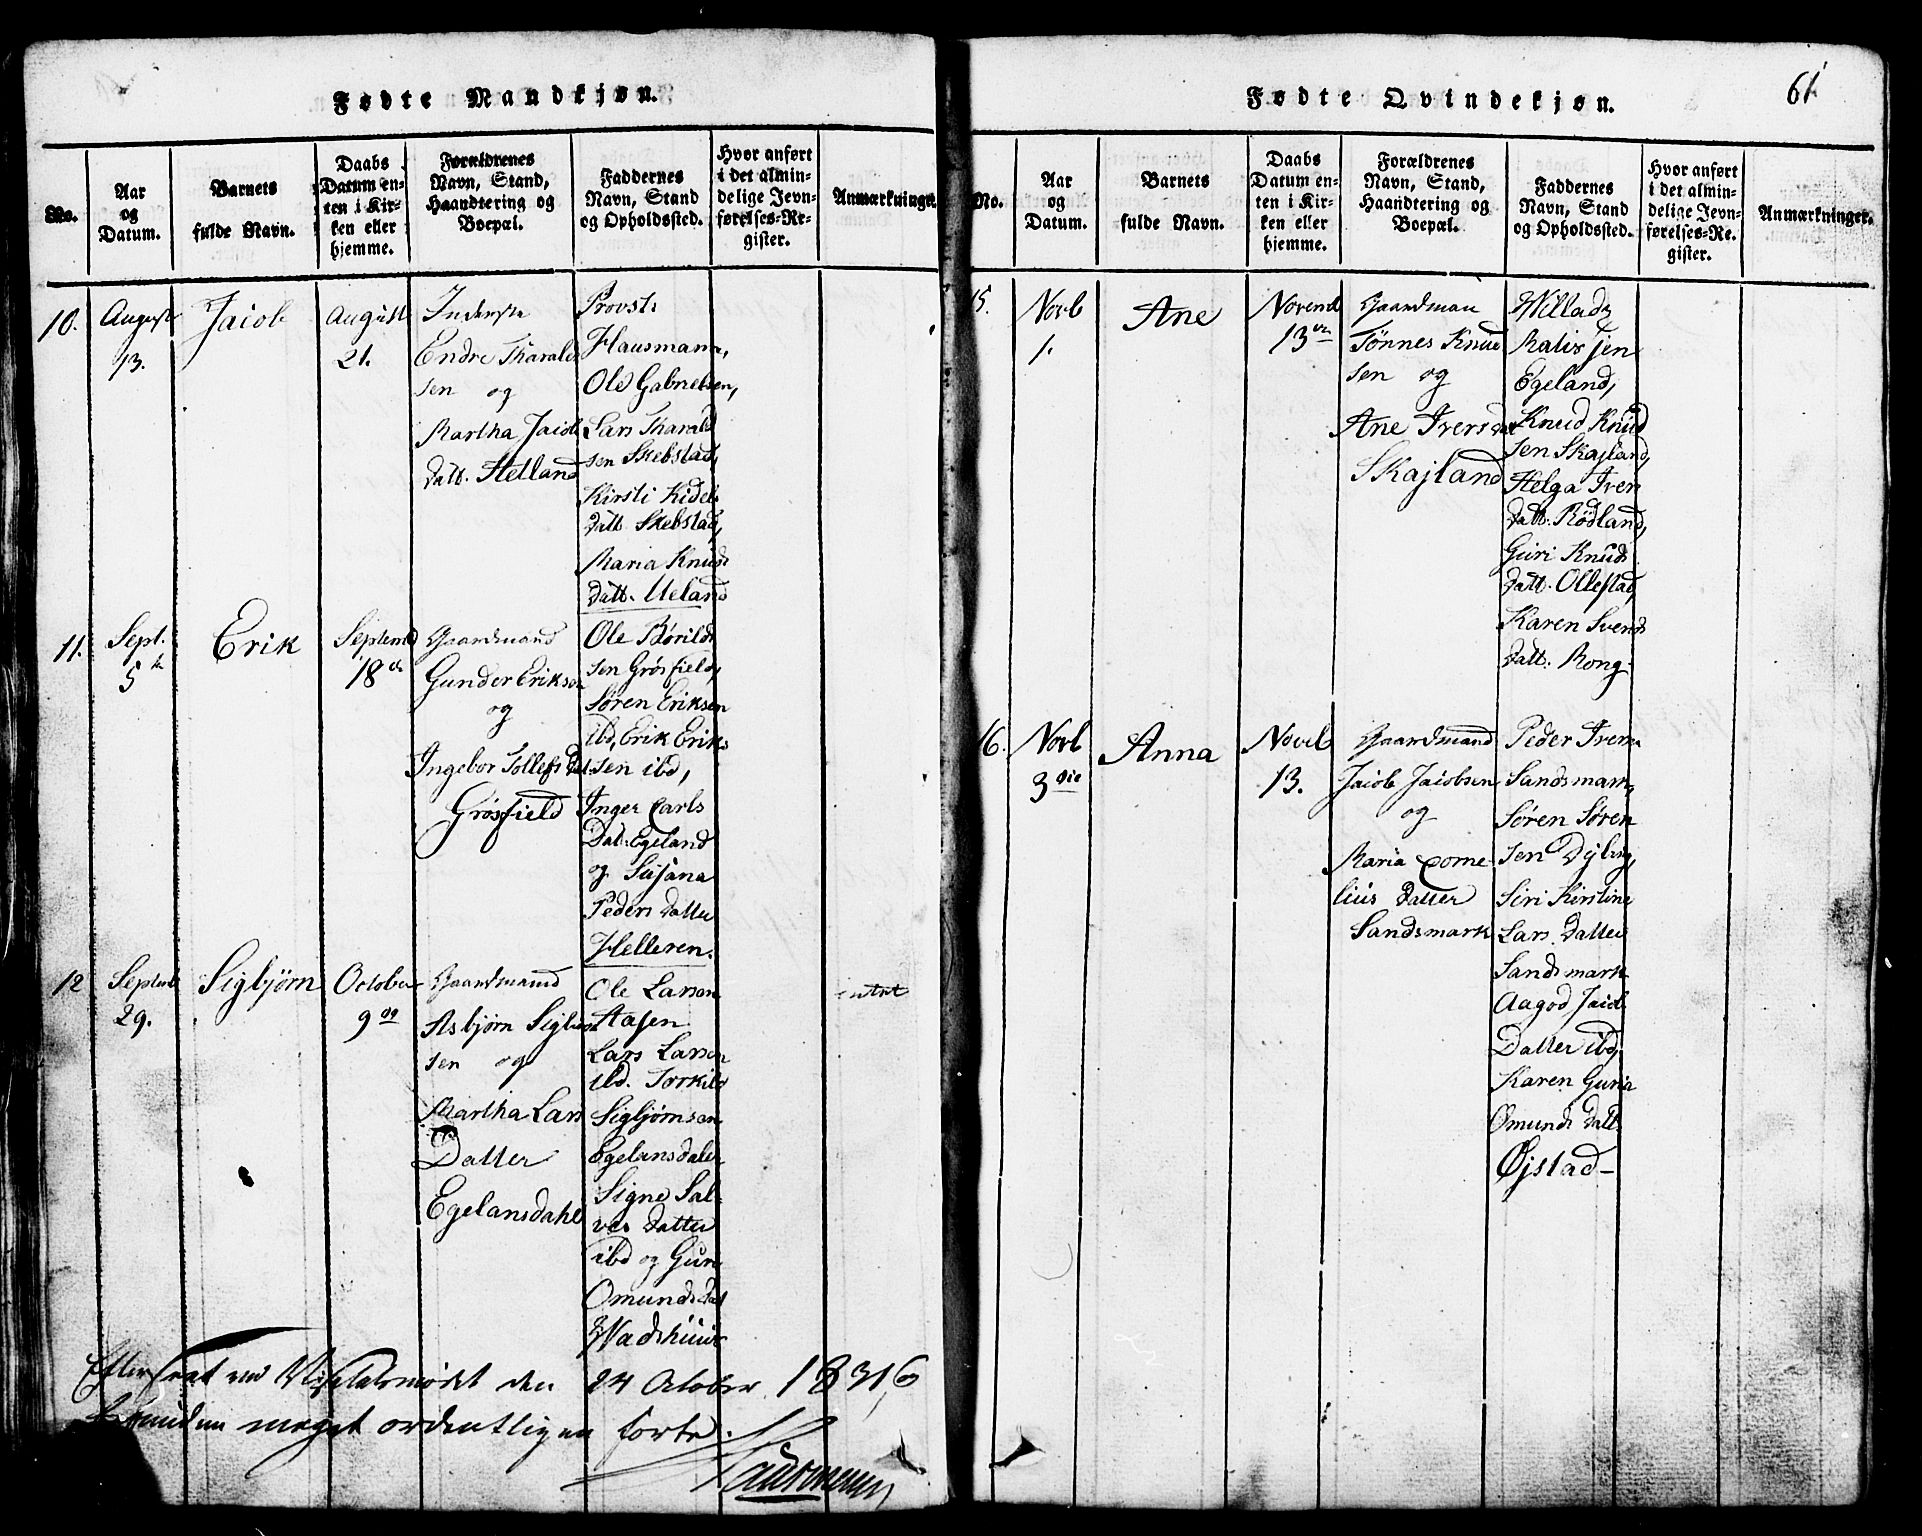 Fødte Mandkjøn.
No.
Aar
og
Datum.
Barnets
fulde Navn.
Daabs
Datum en-
ten i Kir-
ken eller
hjemme.
Forældrenes
Navn, Stand,
Haandtering og
Boepæl.
Faddernes
Navn, Stand
og Opholdssted.
Hvor anført
i det almin-
delige Jevn-
førelses-Re-
gister.
Anmærkninger.
10.
August
13.
Jacob
August
21.
Inderste
Endre Tharald
sen og
Martha Jacob
datt. Helland
Provst
Hausmann,
Ole Gabrielsen,
Lars Tharald
sen Skebstad,
Kirsti Kidel
datt. Skebstad,
Maria Knuds
datt. Ueland
11.
Sept.
5
Erik
Septemb
18
Gaardmand
Gunder Erikson
og
Ingebor Tollefs Dat.
Grøsfield
Ole Bórilds
sen Grøsfield,
Søren Eriksen
ibd, Erik Erik
sen ibd,
Inger Carls
Dat. Egeland
og Susana
Peders Datter
Helleren.
12
Septemb
29.
Sigbjørn
October
9
Gaardmand
Asbjørn Sigbiørn
sen og
Martha Lars
Datter
Egelansdahl
Ole Larsen
Aasen
Lars Larsen
ibd. Torkild
Sigbjørnsen
Egelansdalen
Signe Sal-
ves Datter
ibd og Guri
Omunds dat
Wadshuus
Efterseet ved Visitatsmødet den 24 October 1836
meget ordentligen forte.
Hausmann
Fødte Qvindekjøn.
61
No.
Aar
og
Datum.
Barnets
fulde Navn.
Daabs
Datum en-
ten i Kir-
ken eller
hjemme.
Forældrenes
Navn, Stand,
Haandtering og
Boepæl.
Faddernes
Navn, Stand
og Opholdssted.
Hvor anført
i det almin-
delige Jevn-
førelses-Re-
gister.
Anmærkninger.
15.
Novb
1.
Ane
Novemb
13
Gaardman
Tönnes Knud
sen og
Ane Ivers dat
Skajland
Willads
Malis jen
Egeland,
Knud Knud
sen Skajland,
Helga Iver
datt. Rödland,
Guri Knuds
datt. Ollestad,
Karen Svends
datt. Rong
16.
Novb
3
Anna
Novb
13.
Gaardmand
Jacob Jacobsen
og
Maria Corne
lius Datter
Sandsmark
Peder Ivers
Sandsmark,
Søren Søren
sen Dybing,
Siri Kirstine
Lars Datter
Sandsmark
Aagod Jacob
Datter ibd,
Karen Guria
Omunds datt.
Øjstad